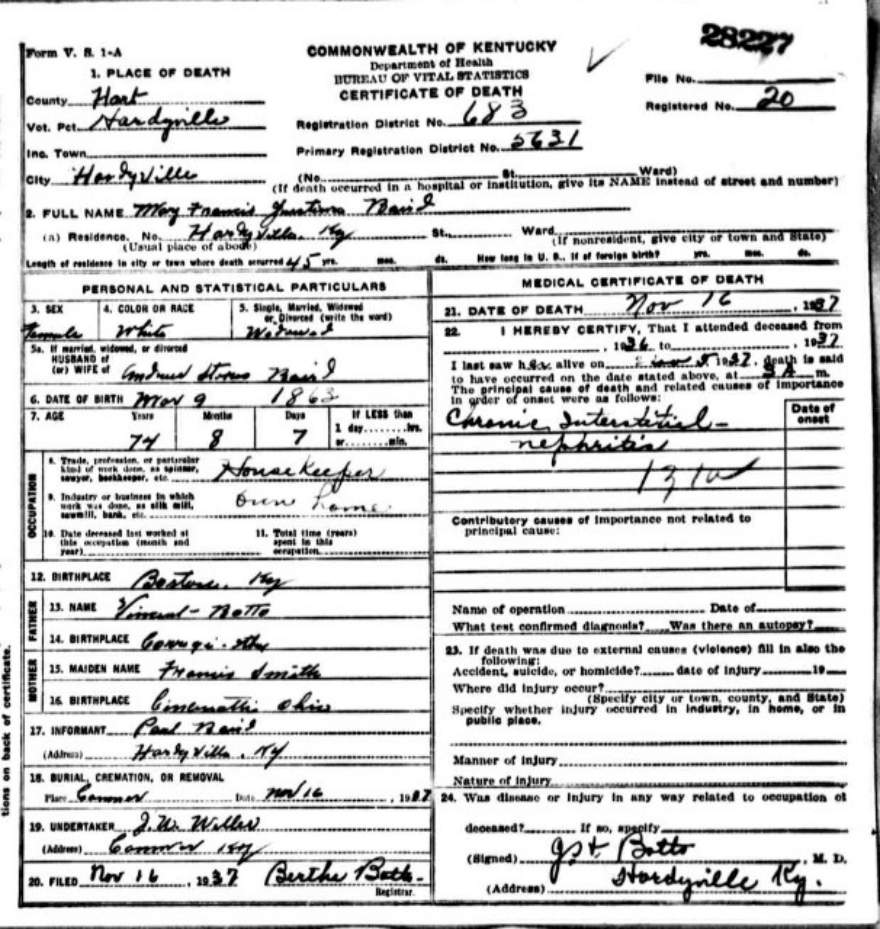 28227
Form V. S. 1-A
COMMONWEALTH OF KENTUCKY
Department of Health
BUREAU OF VITAL STATISTICS
CERTIFICATE OF DEATH
File No.
Registered No. 20
1. PLACE OF DEATH
County Hart
Vot. Pct. Hardyville
Inc. Town
City Hardyville
Registration District No. 683
Primary Registration District No. 5631
(No. St. Ward)
(If death occurred in a hospital or institution, give its NAME instead of street and number)
2. FULL NAME Mary Francis Baird
(a) Residence. No. Hardyville, Ky St., Ward.
(Usual place of abode) (If nonresident, give city or town and State)
Length of residence in city or town where death occurred 45 yrs. mos. ds. How long in U. S., if of foreign birth? yrs. mos. ds.
PERSONAL AND STATISTICAL PARTICULARS
3. SEX 4. COLOR OR RACE 5. Single, Married, Widowed
or Divorced (write the word)
Female White Widowed
5a. If married, widowed, or divorced
HUSBAND of
(or) WIFE of Baird
6. DATE OF BIRTH Mar 9 1863
7. AGE Years Months Days If LESS than
1 day........hrs.
or........min.
74 8 7
OCCUPATION
8. Trade, profession, or particular
kind of work done, as spinner,
sawyer, bookkeeper, etc. House Keeper
9. Industry or business in which
work was done, as silk mill,
sawmill, bank, etc. own home
10. Date deceased last worked at
this occupation (month and
year)
11. Total time (years)
spent in this
occupation
12. BIRTHPLACE Ky
FATHER
13. NAME Botto
14. BIRTHPLACE
MOTHER
15. MAIDEN NAME Francis Smith
16. BIRTHPLACE Cincinatti Ohio
17. INFORMANT Paul Baird
(Address) Hardyville, Ky
18. BURIAL, CREMATION, OR REMOVAL
Place Date Nov 16, 1937
19. UNDERTAKER J. W.
(Address) Ky
20. FILED Nov 16, 1937 Berthe Botto
Registrar.
MEDICAL CERTIFICATE OF DEATH
21. DATE OF DEATH Nov 16, 1937
22. I HEREBY CERTIFY, That I attended deceased from
, 1936 to , 1937
I last saw her alive on 1937, death is said
to have occurred on the date stated above, at m.
The principal cause of death and related causes of importance
in order of onset were as follows:
Date of
onset
Chronic Interstitial-
nephritis
131a
Contributory causes of importance not related to
principal cause:
Name of operation Date of
What test confirmed diagnosis? Was there an autopsy?
23. If death was due to external causes (violence) fill in also the
following:
Accident, suicide, or homicide? date of injury 19
Where did injury occur?
(Specify city or town, county, and State)
Specify whether injury occurred in industry, in home, or in
public place.
Manner of injury
Nature of injury
24. Was disease or injury in any way related to occupation of
deceased? If so, specify
(Signed) Botto, M. D.
(Address) Hardyville Ky.
tions on back of certificate.